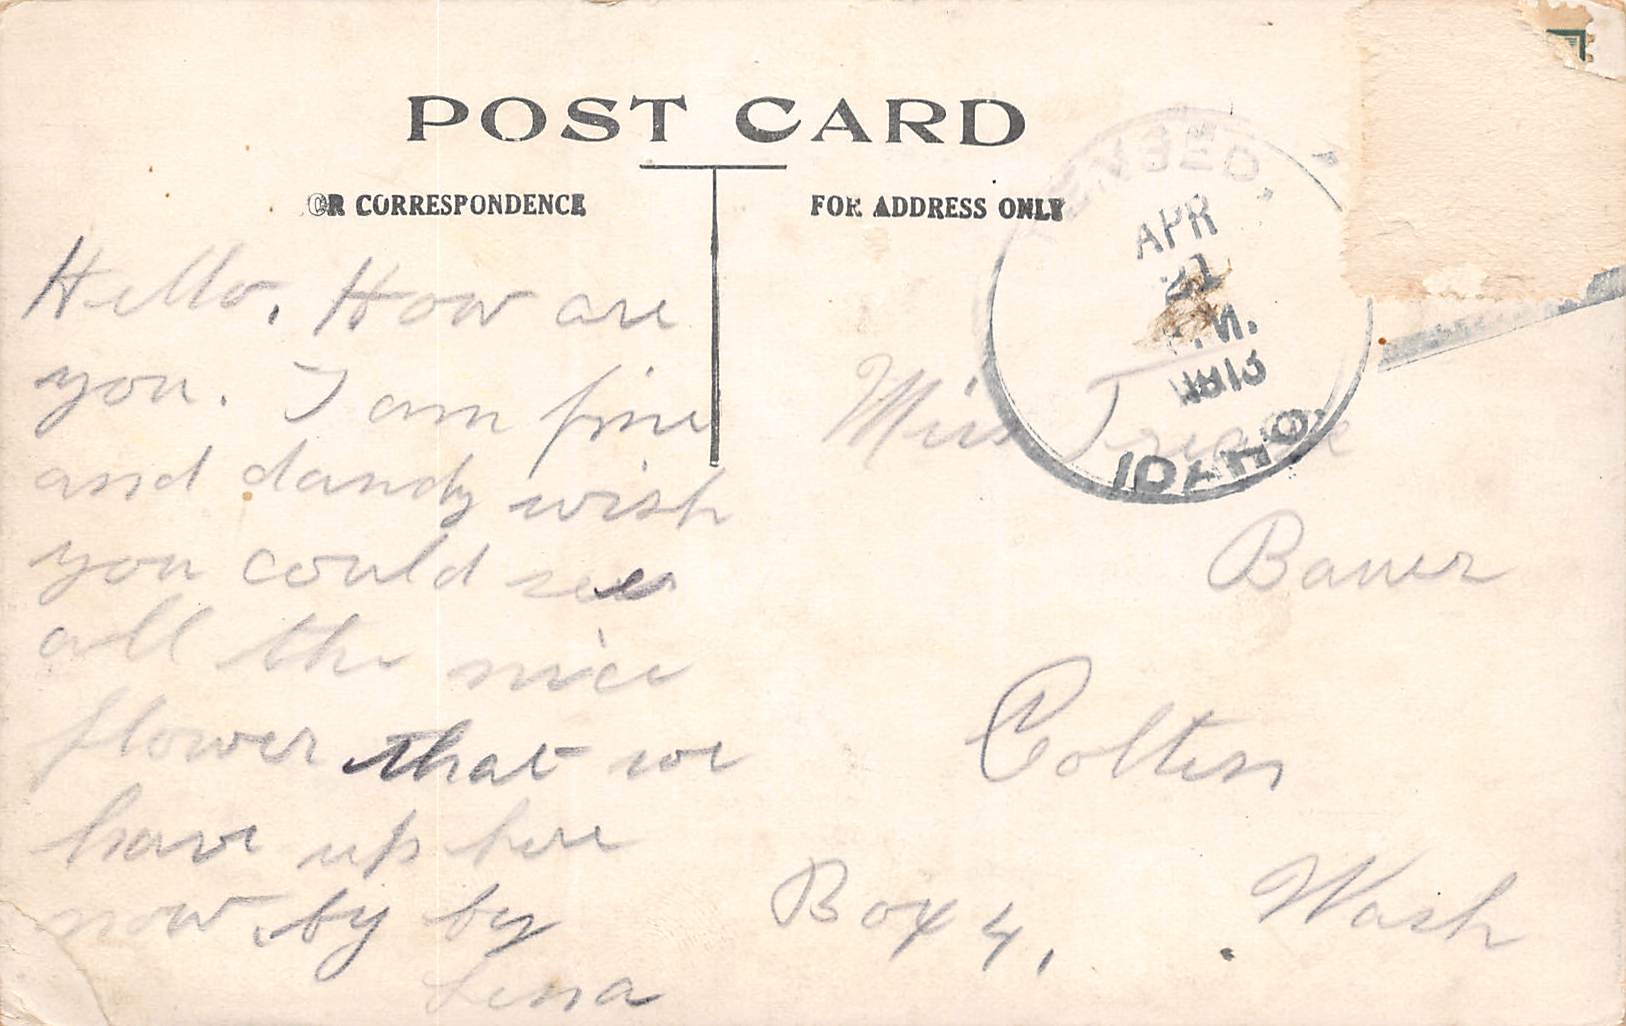 POST CARD
OR CORRESPONDENCE
FOR ADDRESS ONLY
APR
21
1913
IDAHO.
Hello. How are
you. I am fine
and dandy wish
you could see
all the nice
flower that we
have up here
now. by by
Lena
Miss
Bauer
Colton
Wash
Box 4,